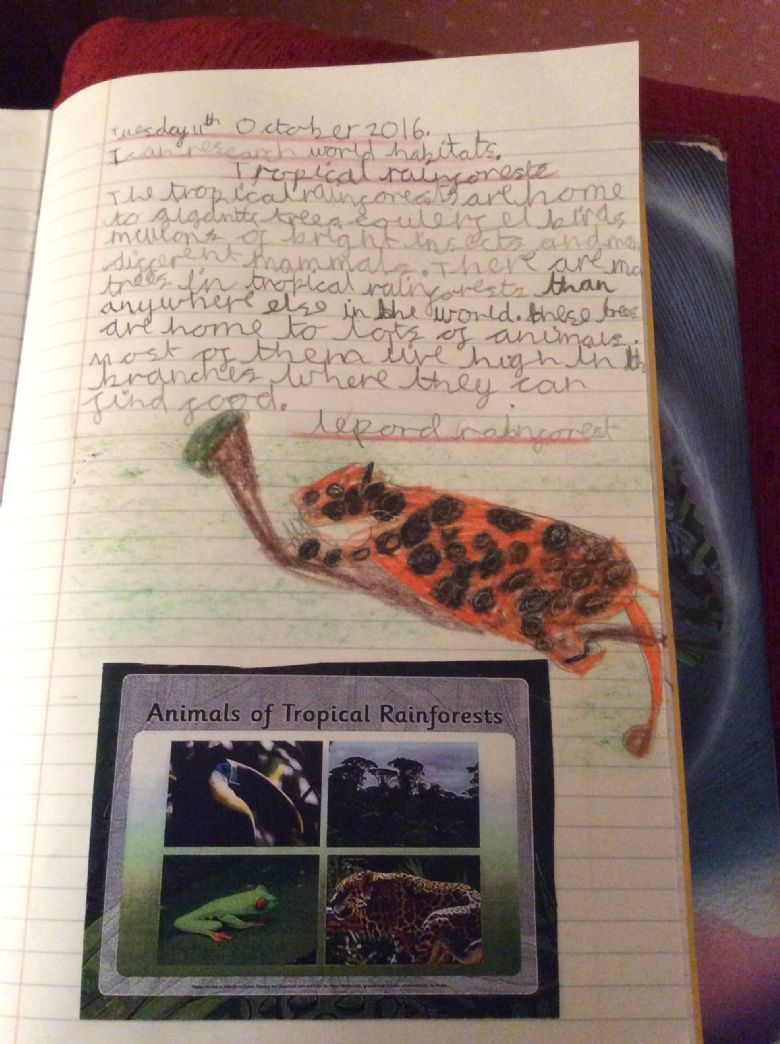 Tuesday 11th October 2016.
I can research world habitats.
Tropical rainforests
The tropical rainforests are home
to gigantic trees, birds
millons of bright insects and
different mammals. There are
trees in tropical rainforests than
anywhere else in the world. these trees
are home to lots of animals.
Most of them live high in
branches where they can
find food.
lepord rainforest
Animals of Tropical Rainforests